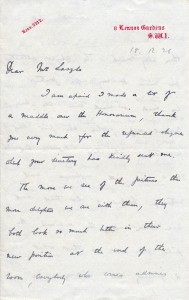 8 Lennox Gardens
S.W.1.
Dear Mr
I am afraid I made a bit of
a muddle over the Honorarium, thank
you very much for the refunded cheque
which your secretary has kindly sent me.
The more we see of the pictures the
more delighted we are with them, they
both look so much better in their
new position at the end of the
room, everybody who comes admires